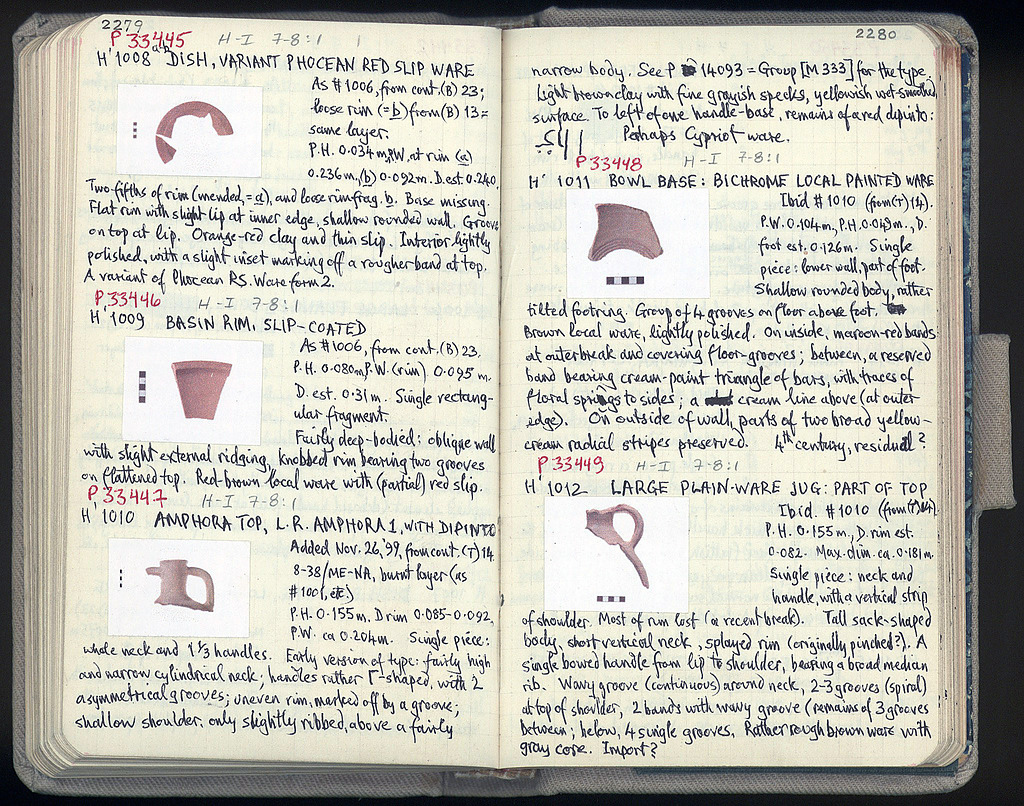 2279
P 33445 H-I 7-8:1 1
H' 1008 a,b DISH, VARIANT PHOCEAN RED SLIP WARE
As #1006, from cont.(B) 23;
loose rim (=b) from (B) 13 =
same layer.
P.H. 0.034 m, P.W. at rim (a)
0.236 m, (b) 0.092 m. D. est. 0.240.
Two-fifths of rim (mended, = a), and loose rim frag. b. Base missing.
Flat rim with slight lip at inner edge, shallow rounded wall. Groove
on top at lip. Orange-red clay and thin slip. Interior lightly
polished, with a slight inset marking off a rougher band at top.
A variant of Phocean RS. Ware form 2.
P 33446 H-I 7-8:1
H' 1009 BASIN RIM, SLIP-COATED
As #1006, from cont.(B) 23.
P.H. 0.080 m, P.W. (rim) 0.095 m.
D. est. 0.31 m. Single rectang-
ular fragment.
Fairly deep-bodied: oblique wall
with slight external ridging, knobbed rim bearing two grooves
on flattened top. Red-brown local ware with (partial) red slip.
P 33447 H-I 7-8:1
H' 1010 AMPHORA TOP, L.R. AMPHORA 1, WITH DIPINTO
Added Nov. 26, '99, from cont. (T) 14
8-38/ME-NA, burnt layer (as
#1001, etc.)
P.H. 0.155 m, D rim 0.085-0.092,
P.W. ca 0.204 m. Single piece:
whole neck and 1 1/3 handles. Early version of type: fairly high
and narrow cylindrical neck; handles rather Γ-shaped, with 2
asymmetrical grooves; uneven rim, marked off by a groove;
shallow shoulder, only slightly ribbed, above a fairly
2280
narrow body. See P 14093 = Group [M 333] for the type.
Light brown clay with fine grayish specks, yellowish wet-smoothed
surface. To left of one handle-base, remains of a red dipinto:
Perhaps Cypriot ware.
P 33448 H-I 7-8:1
H' 1011 BOWL BASE: BICHROME LOCAL PAINTED WARE
Ibid #1010 (from (T) 14).
P.W. 0.104 m, P.H. 0.049 m., D.
foot est. 0.126 m. Single
piece: lower wall, part of foot.
Shallow rounded body, rather
tilted footring. Group of 4 grooves on floor above foot.
Brown local ware, lightly polished. On inside, maroon-red bands
at outer break and covering floor-grooves; between, a reserved
band bearing cream-paint triangle of bars, with traces of
floral sprigs to sides; a cream line above (at outer
edge). On outside of wall, parts of two broad yellow-
cream radial stripes preserved. 4th century, residual?
P 33449 H-I 7-8:1
H' 1012 LARGE PLAIN-WARE JUG: PART OF TOP
Ibid. #1010 (from (T) 14).
P.H. 0.155 m., D. rim est.
0.082. Max. dim. ca. 0.181 m.
Single piece: neck and
handle, with a vertical strip
of shoulder. Most of rim lost (a recent break). Tall sack-shaped
body, short vertical neck, splayed rim (originally pinched?). A
single bowed handle from lip to shoulder, bearing a broad median
rib. Wavy groove (continuous) around neck, 2-3 grooves (spiral)
at top of shoulder, 2 bands with wavy groove (remains of 3 grooves
between; below, 4 single grooves. Rather rough brown ware with
gray core. Import?